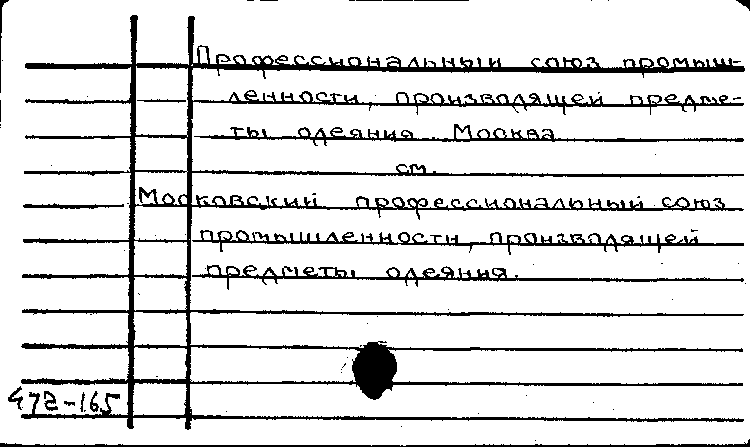 Профессиональный союз промыш-
ленности, производящей предме-
ты одеяния. Москва
см.
Московский профессиональный союз
промышленности, производящей
предметы одеяния.
472-165